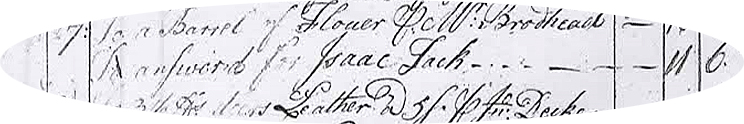 27: To a Barrel of Flower P Wm: Brodhead
To answerd for Isaac Lack - - - - - 11 6
Leather @ 5/ P Jn: Decke